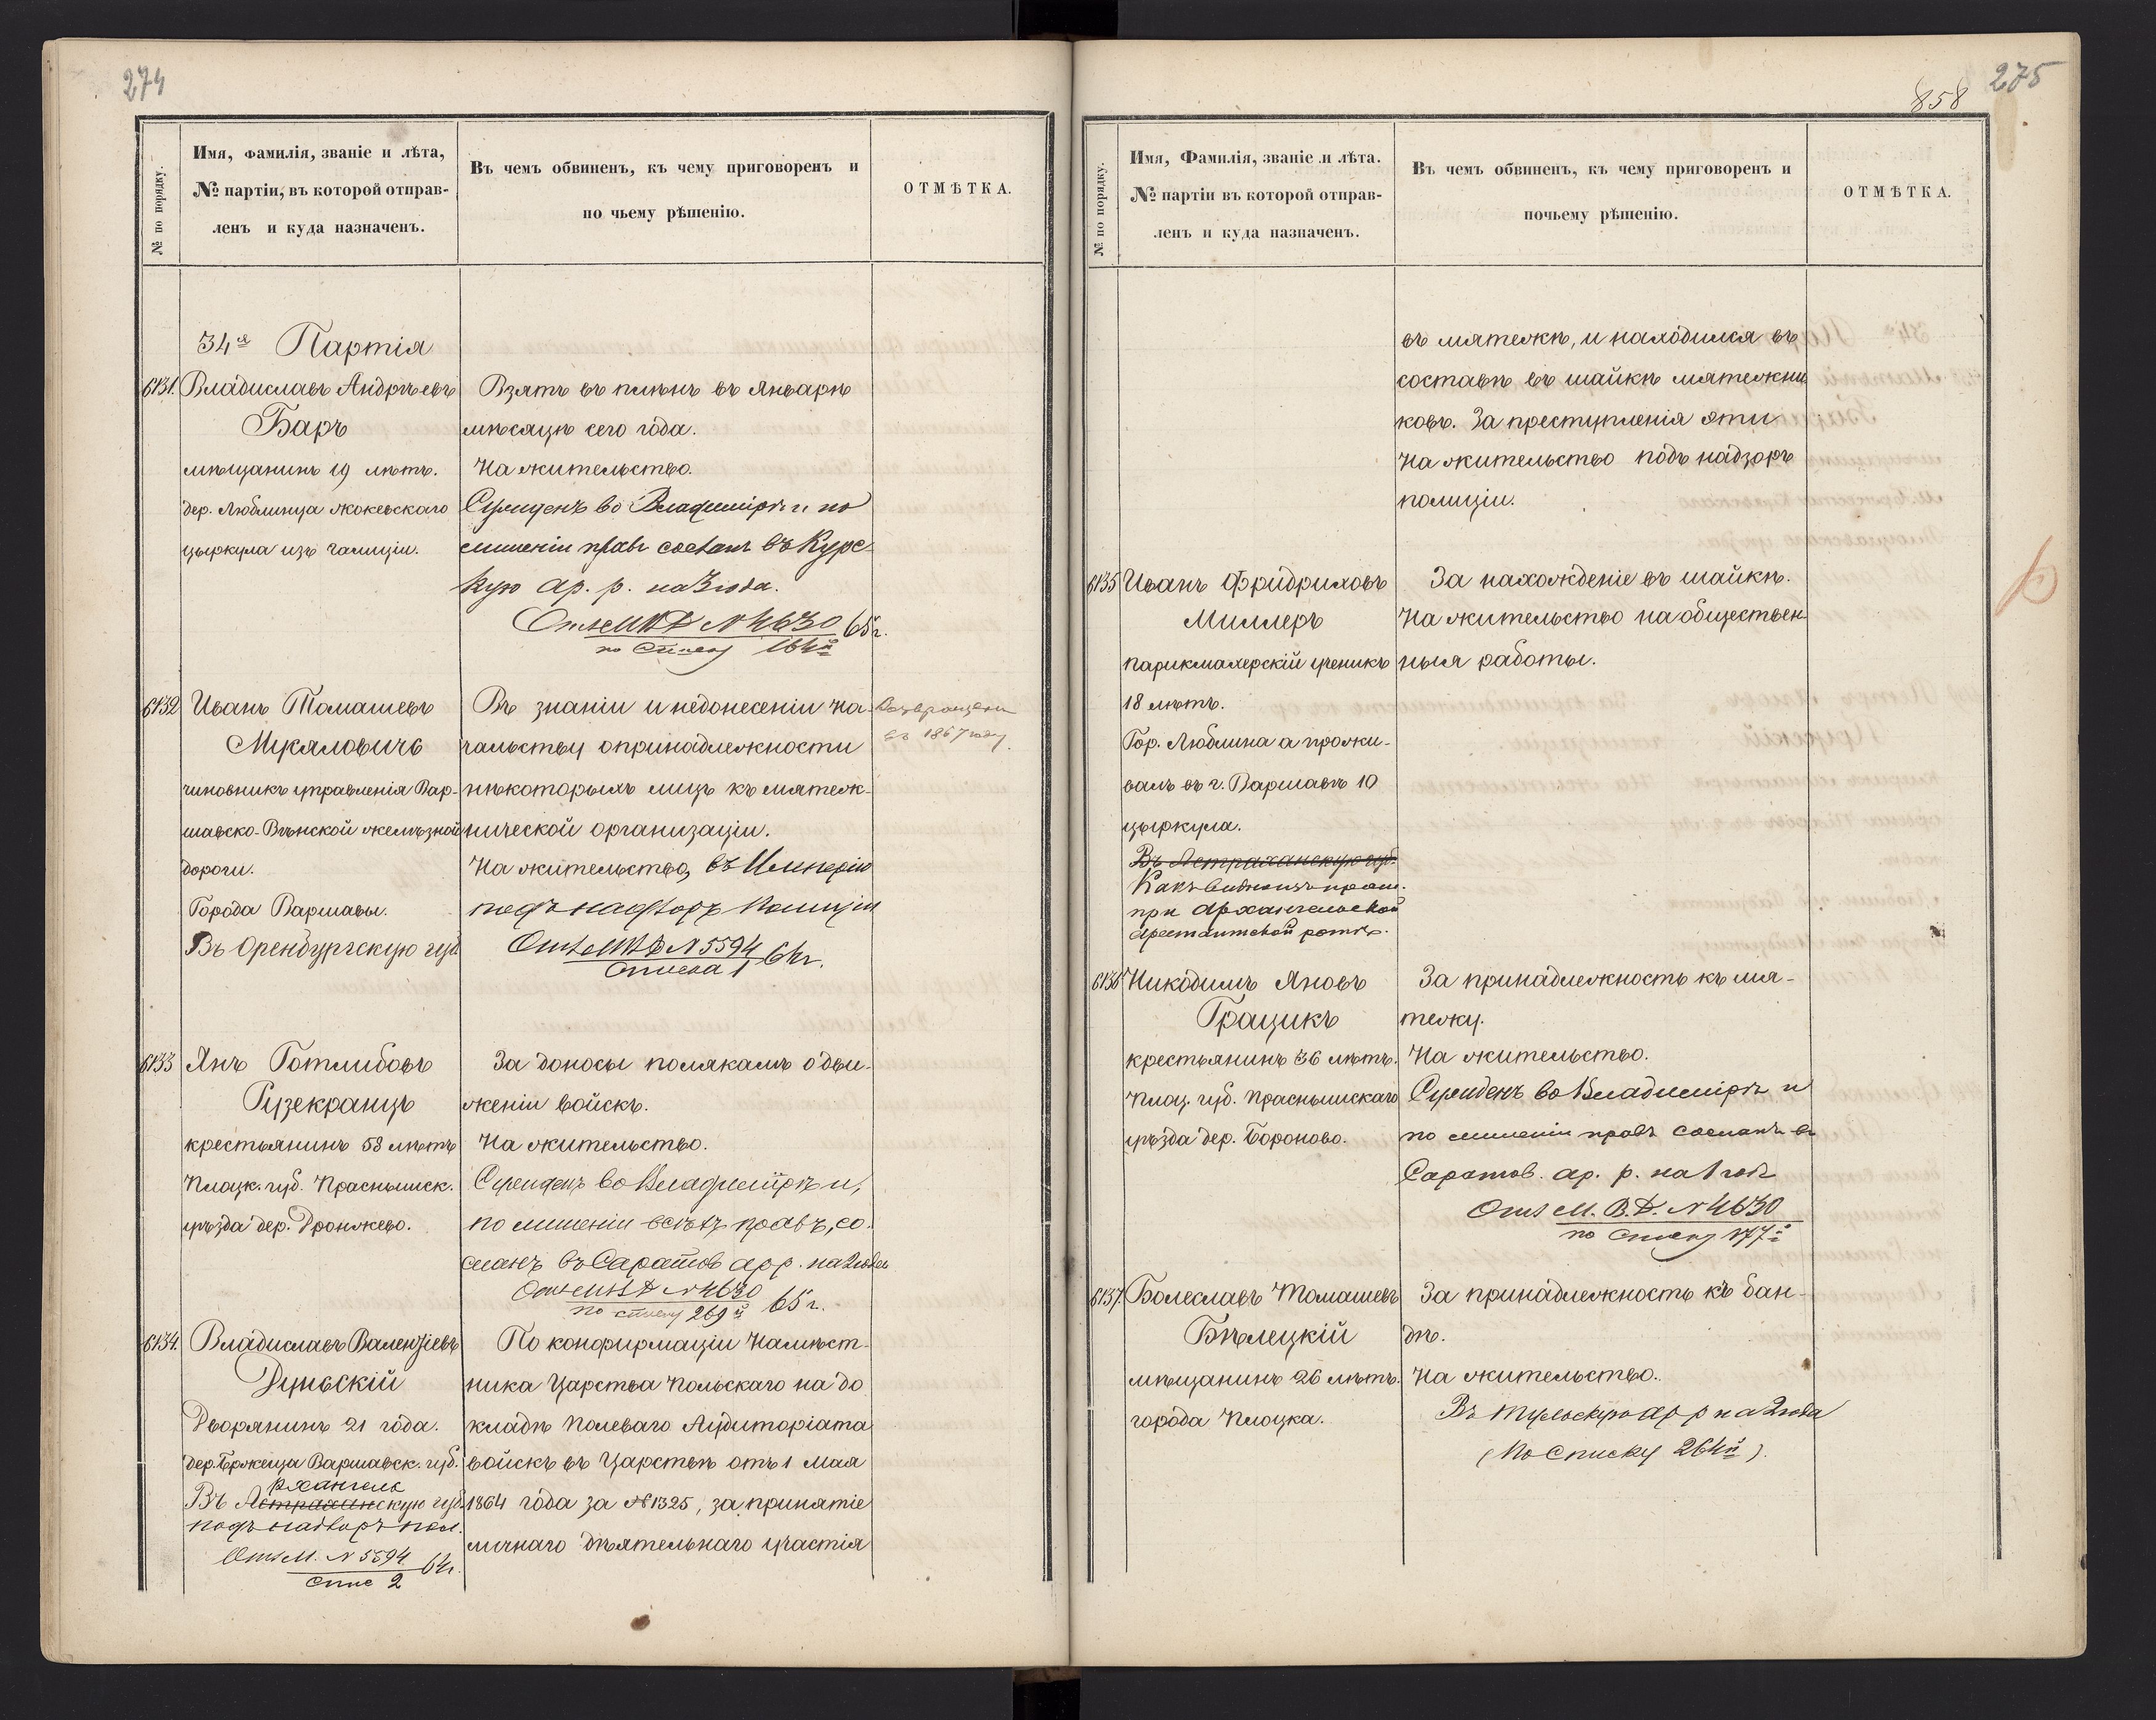 274
№ по порядку.
Имя, фамилія, званіе и лѣта,
№ партіи, въ которой отправ-
ленъ и куда назначенъ.
Въ чемъ обвиненъ, къ чему приговоренъ и
по чьему рѣшенію.
ОТМѢТКА.
34я Партія
6131. Владиславъ Андрѣевъ
Баръ
мѣщанинъ 19 лѣтъ.
дер. Люблинца жокевскаго
цыркула изъ Галиціи.
Взятъ въ плѣнъ въ Январѣ
мѣсяцѣ сего года.
На жительство.
Сужденъ во Владимірѣ и по
лишеніи правъ сосланъ въ Курс-
кую ар. р. на 3 года.
Отн МВД № 4630 65 г.
по списку 164й
6132 Иванъ Томашевъ
Мукяловичъ
чиновникъ управленія Вар-
шавско-Вѣнской желѣзной
дороги.
Города Варшавы.
Въ Оренбургскую губ
Въ знаніи и недонесеніи на-
чальству опринадлежности
нѣкоторыхъ лицъ къ мятеж-
нической организаціи.
На жительство, въ Имперію
подъ надзоръ полиціи
Отн МВД № 5594 64 г.
Списка 1
Возвращенъ
въ 1867 году.
6133 Янъ Готлибовъ
Рузекранцъ
крестьянинъ 58 лѣтъ
Плоцк. губ. Праснышск.
уѣзда дер. Дронжево.
За доносы полякамъ о дви-
женіи войскъ.
На жительство.
Сужденъ во Владимірѣ и,
по лишеніи всѣхъ правъ, со-
сланъ въ Саратов ар р. на 2 года
Отн МВД № 4630 65 г.
по списку 269й
6134. Владиславъ Валенціевъ
Дуньскій
Дворянинъ 21 года.
дер. Бржеща Варшавск. губ.
рхангель
Въ Астраханскую губ.
подъ надзоръ пол.
Отн М. № 5594 64 г.
спис 2
По конфирмаціи Намѣст-
ника Царства Польскаго на до
кладѣ Полеваго Аудиторіата
войскъ въ Царствѣ отъ 1 Мая
1864 года за № 1325, за принятіе
личнаго дѣятельнаго участія
858
275
№ по порядку.
Имя, Фамилія, званіе и лѣта.
№ партіи въ которой отправ-
ленъ и куда назначенъ.
Въ чемъ обвиненъ, къ чему приговоренъ и
почьему рѣшенію.
ОТМѢТКА.
въ мятежѣ, и находился въ
составѣ въ шайкѣ мятежни
ковъ. За преступленія эти
на жительство подъ надзоръ
полиціи.
6135 Иванъ Фридриховъ
Миллеръ
парикмахерскій ученикъ
18 лѣтъ.
Гор. Люблина а прожи-
валъ въ г. Варшавѣ 10
цыркула.
Въ Астраханскую губ.
Какъ видно изъ
при Архангельской
арестантской ротѣ.
За нахожденіе въ шайкѣ.
На жительство на обществен-
ныя работы.
6136 Никодимъ Яновъ
Грацикъ
крестьянинъ 36 лѣтъ.
Плоц. губ. Праснышскаго
уѣзда дер. Бороново.
За принадлежность къ мя-
тежу.
На жительство.
Сужденъ во Владимірѣ и
по лишеніи правъ сосланъ въ
Саратов. ар. р. на 1 годъ
Отн М. В. Д. № 4630
по списку 177й
6137. Болеславъ Томашевъ
Бѣлецкій
мѣщанинъ 26 лѣтъ.
города Плоцка.
За принадлежность къ бан-
дѣ.
На жительство.
Въ Тульскую ар р на 2 года
(По списку 264й).